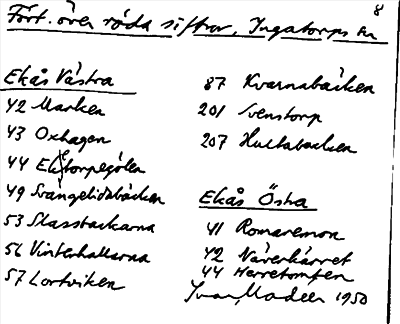 Fört. över röda siffror, Ingatorps sn
8
Ekås Västra
42 Marken
43 Oxhagen
44 Eketorpegölen
49 Svängelidsbäcken
53 Slassbackarna
56 Vinterhallarna
57 Lortviken
87 Kvarnabäcken
201 Svenstorp
207 Hultabacken
Ekås Östra
41 Romaremon
42 Näverkärret
44 Herretompen
Ivar Modéer 1950